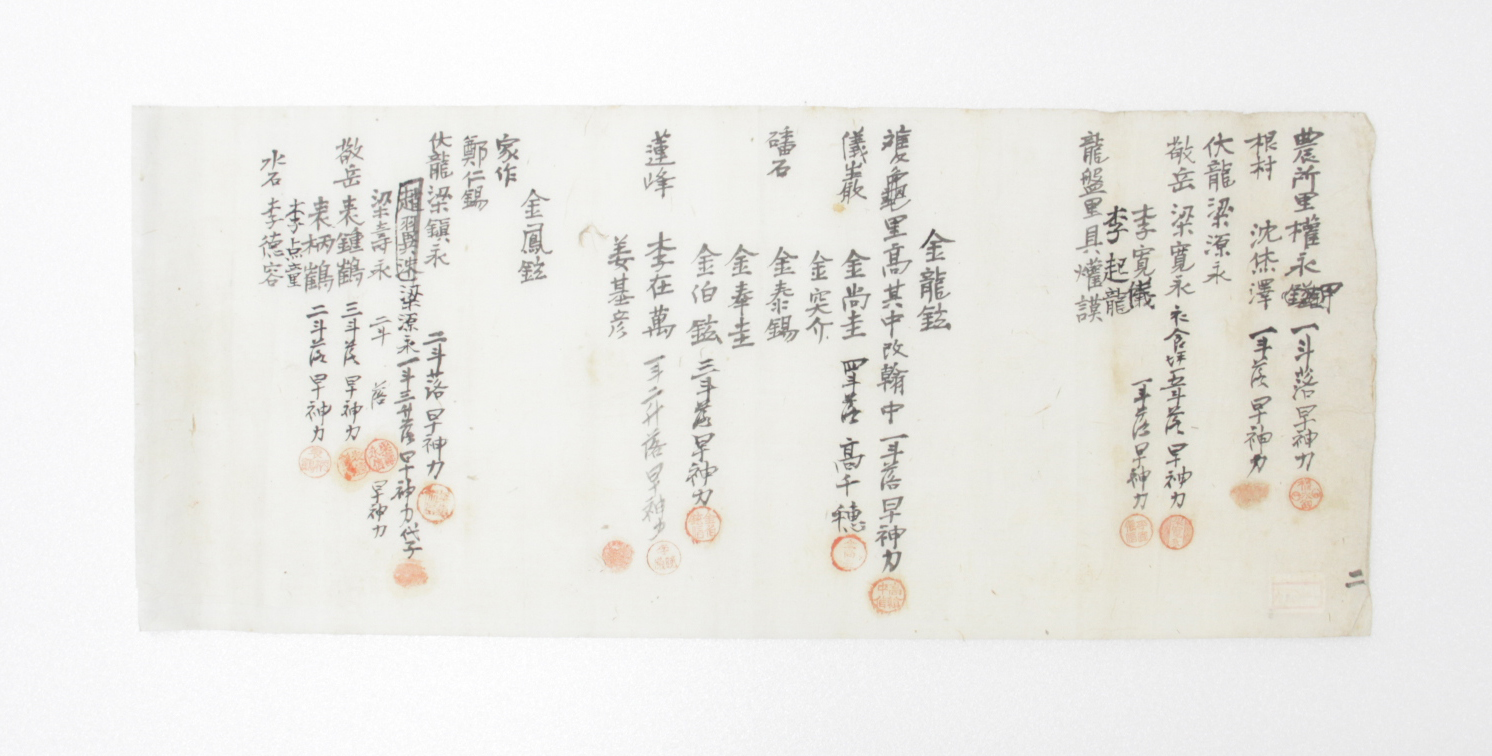 農所里權永鎰甲 一斗落早神力
根村 沈烋澤 一斗落早神力
伏龍梁源永
敬岳梁寬永 五斗落早神力
李寬儀 一斗落早神力
李起龍
龍盤里具爟謨
金龍鉉
龜里高其中改翰中 一斗落早神力
儀巖 金尚圭 四斗落 高千穗
金突介
磻石 金泰錫
金奉圭
金伯鉉 三斗落早神力
蓮峰 李在萬 一斗二升落早神力
姜基彦
金鳳鉉
家作
鄭仁錫
伏龍梁鎮永 二斗落早神力
梁源永一斗三升落早神力代子
梁壽永 二斗落 早神力
敬岳 袁鍾鶴 三斗落早神力
袁柄鶴 二斗落早神力
李点童
水石 李德容
二